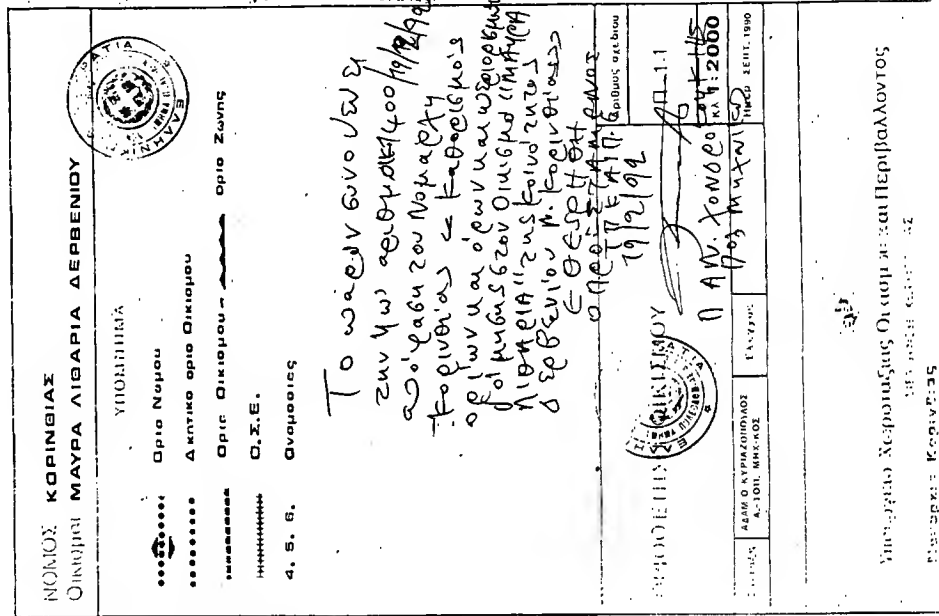 ΝΟΜΟΣ ΚΟΡΙΝΘΙΑΣ
Οικισμοί ΜΑΥΡΑ ΛΙΘΑΡΙΑ ΔΕΡΒΕΝΙΟΥ
ΥΠΟΜΝΗΜΑ
Όρια Νομού
Διοικητικό όριο Οικισμού
Όρια Οικισμού - όριο Ζώνης
Ο.Σ.Ε.
4. 5. 6. Ονομασίες
Το παρόν συνοδεύει
την υπ' αριθμό 1400/19/2/92
απόφαση του Νομάρχη
Κορινθίας «Καθορισμός
ορίων και όρων και περιορισμών
δόμησης στον Οικισμό "ΜΑΥΡΑ
ΛΙΘΑΡΙΑ" της Κοινότητας
Δερβενίου Ν. Κορινθίας»
ΕΘΕΩΡΗΘΗ
Ο ΠΡΟΪΣΤΑΜΕΝΟΣ
19/2/92
ΠΑΝ. ΧΟΝΔΡΟ
Πολ. Μηχανικός
ΟΡΙΟΘΕΤΗΣΗ ΟΙΚΙΣΜΟΥ
αριθμος σχεδιου
Π.1.1
ΚΛ 1:2000
Ημερ ΣΕΠΤ. 1990
ΑΔΑΜ Ο ΚΥΡΙΑΖΟΠΟΥΛΟΣ
Α.-ΤΟΠ. ΜΗΧ-ΚΟΣ
Έλεγχος
Υπουργείο Χωροταξίας Οικισμού και Περιβάλλοντος
Νομαρχία Κορινθίας